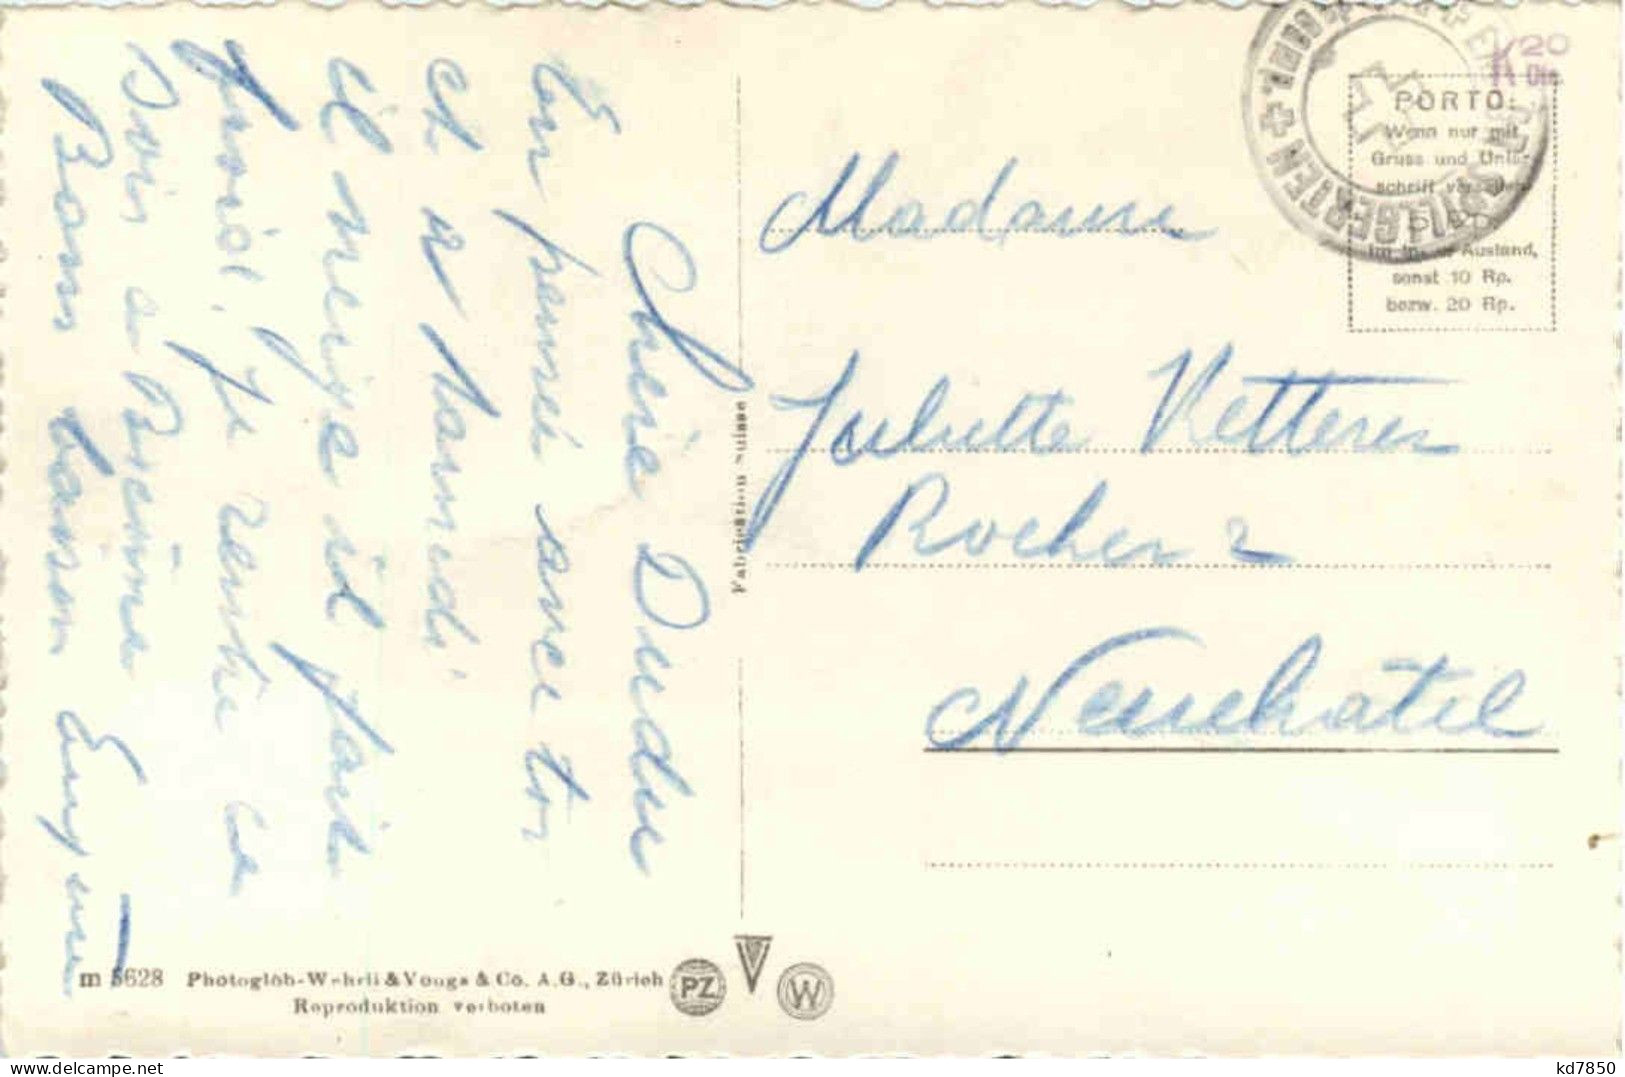 Chérie Dudu
En pensée avec toi
et à samedi
il neige il fait
froid, je rentre ce
soir à Bienne
Bons baisers
Madame
Juliette Ketterer
Rocher 2
Neuchâtel
PORTO:
Wenn nur mit
Gruss und Unter-
schrift versehen
5 Rp.
im In- u. Ausland,
sonst 10 Rp.
bezw. 20 Rp.
K 20
Fabrication suisse
m 5628 Photoglob-Wehrli & Vouga & Co. A.G., Zürich
Reproduktion verboten
PZ
V
W
kd7850